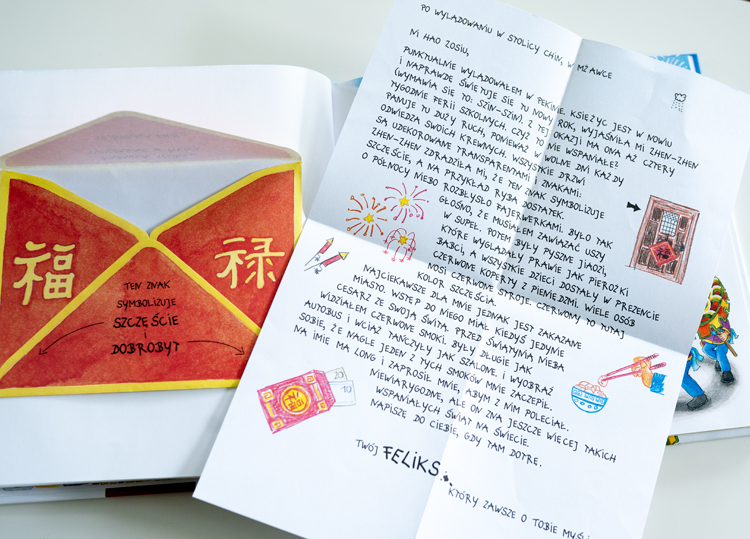 福
禄
TEN ZNAK
SYMBOLIZUJE
SZCZĘŚCIE
I
DOBROBYT
PO WYLĄDOWANIU W STOLICY CHIN, W MŻAWCE
NI HAO ZOSIU,
PUNKTUALNIE WYLĄDOWAŁEM W PEKINIE. KSIĘŻYC JEST W NOWIU
I NAPRAWDĘ ŚWIĘTUJE SIĘ TU NOWY ROK, WYJAŚNIŁA MI ZHEN-ZHEN
(WYMAWIA SIĘ TO: SZIN-SZIN). Z TEJ OKAZJI MA ONA AŻ CZTERY
TYGODNIE FERII SZKOLNYCH. CZYŻ TO NIE WSPANIAŁE?
PANUJE TU DUŻY RUCH, PONIEWAŻ W WOLNE DNI KAŻDY
ODWIEDZA SWOICH KREWNYCH. WSZYSTKIE DRZWI
SĄ UDEKOROWANE TRANSPARENTAMI I ZNAKAMI.
ZHEN-ZHEN ZDRADZIŁA MI, ŻE TEN ZNAK SYMBOLIZUJE
SZCZĘŚCIE, A NA PRZYKŁAD RYBA DOSTATEK.
O PÓŁNOCY NIEBO ROZBŁYSŁO FAJERWERKAMI. BYŁO TAK
GŁOŚNO, ŻE MUSIAŁEM ZAWIĄZAĆ USZY
W SUPEŁ. POTEM BYŁY PYSZNE JIAOZI,
KTÓRE WYGLĄDAŁY PRAWIE JAK PIEROŻKI
BABCI, A WSZYSTKIE DZIECI DOSTAŁY W PREZENCIE
CZERWONE KOPERTY Z PIENIĘDZMI. WIELE OSÓB
NOSI CZERWONE STROJE. CZERWONY TO TUTAJ
KOLOR SZCZĘŚCIA.
NAJCIEKAWSZE DLA MNIE JEDNAK JEST ZAKAZANE
MIASTO. WSTĘP DO NIEGO MIAŁ KIEDYŚ JEDYNIE
CESARZ ZE SWOJĄ ŚWITĄ. PRZED ŚWIĄTYNIĄ NIEBA
WIDZIAŁEM CZERWONE SMOKI. BYŁY DŁUGIE JAK
AUTOBUS I WCIĄŻ TAŃCZYŁY JAK SZALONE. I WYOBRAŹ
SOBIE, ŻE NAGLE JEDEN Z TYCH SMOKÓW MNIE ZACZEPIŁ.
NA IMIĘ MA LONG I ZAPROSIŁ MNIE, ABYM Z NIM POLECIAŁ.
NIEWIARYGODNE, ALE ON ZNA JESZCZE WIĘCEJ TAKICH
WSPANIAŁYCH ŚWIĄT NA ŚWIECIE.
NAPISZĘ DO CIEBIE, GDY TAM DOTRĘ.
TWÓJ FELIKS,
KTÓRY ZAWSZE O TOBIE MYŚLI
20
10